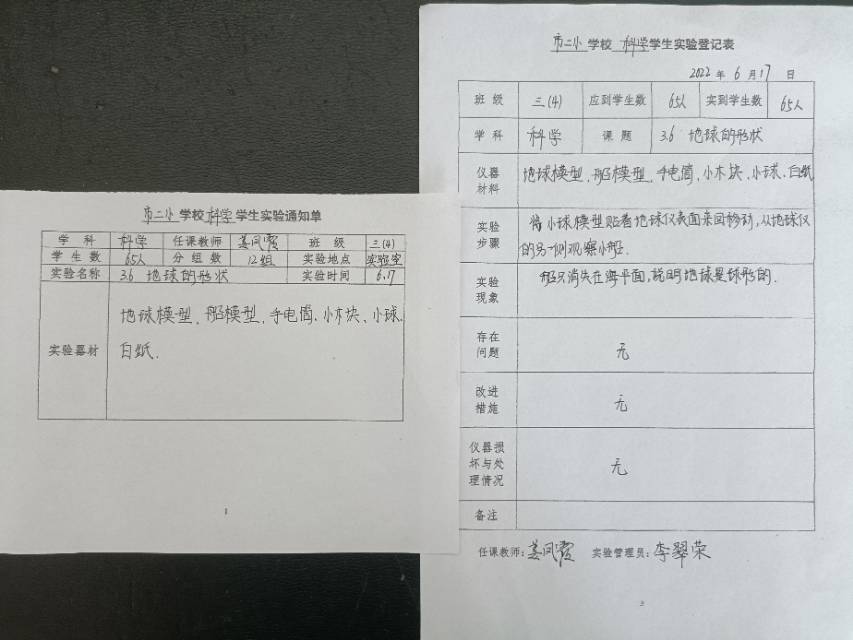 市二小学校科学学生实验通知单
学科 科学 任课教师 姜凤霞 班级 三(4)
学生数 65人 分组数 12组 实验地点 实验室
实验名称 3.6 地球的形状 实验时间 6.17
实验器材 地球模型、船模型、手电筒、小木块、小球、
白纸.
1
市二小学校 科学学生实验登记表
2022年6月17日
班级 三(4) 应到学生数 65人 实到学生数 65人
学科 科学 课题 3.6 地球的形状
仪器材料 地球模型、船模型、手电筒、小木块、小球、白纸
实验步骤 将小球模型贴着地球仪表面来回移动,从地球仪
的另一侧观察小船.
实验现象 船只消失在海平面,说明地球是球形的.
存在问题 无
改进措施 无
仪器损坏与处理情况 无
备注
任课教师:姜凤霞 实验管理员:李翠荣